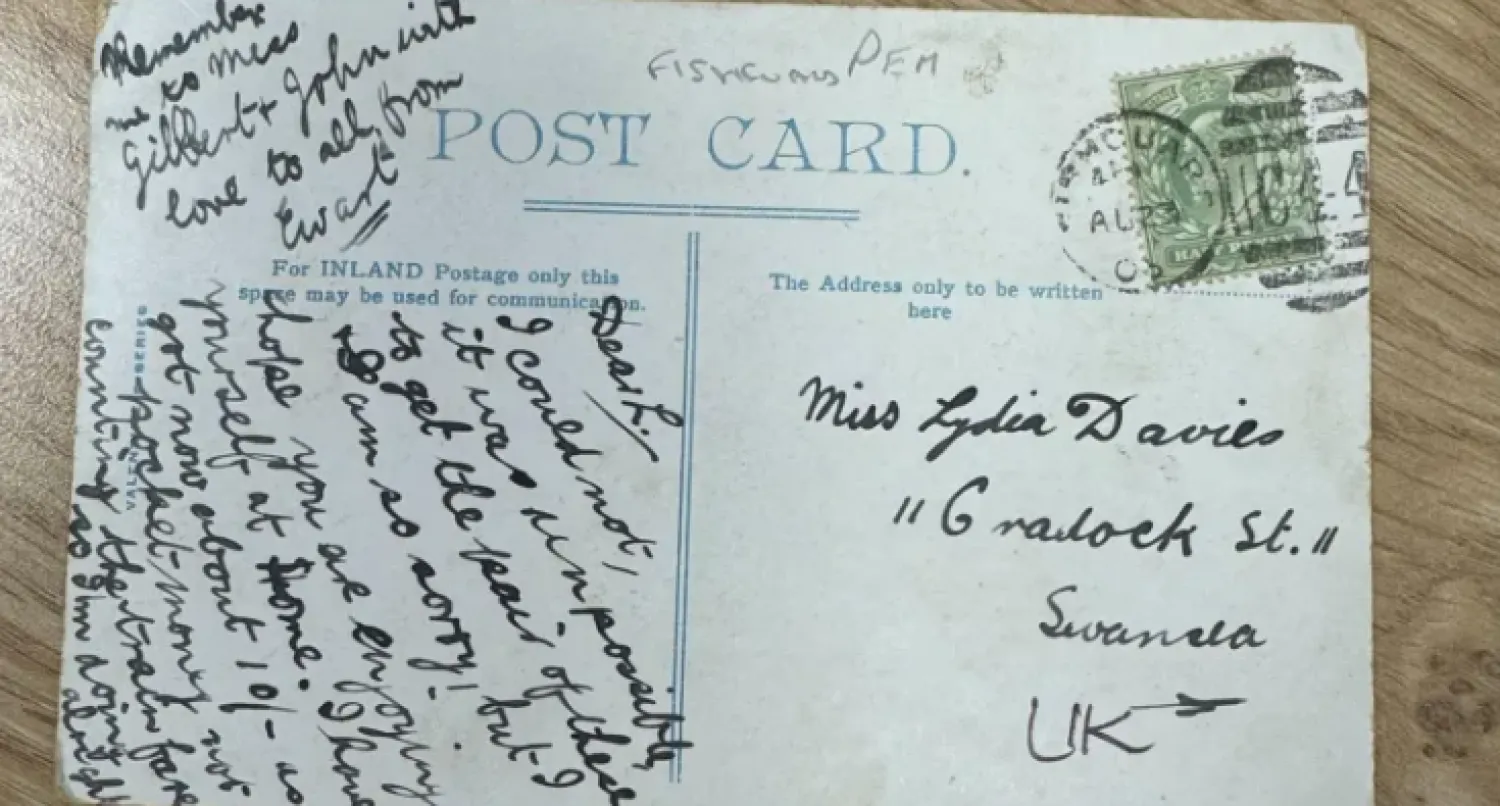 Remember
me to Miss
Gilbert & John with
love to all from
Ewart
PEM
POST CARD.
For INLAND Postage only this
space may be used for communication.
The Address only to be written
here
VALENTINES SERIES
Dear L.
I could not,
it was impossible
to get the pair of these
& I am so sorry! but I
hope you are enjoying
yourself at home. I have
got now about 10/- as
pocket-money not
counting the train fare
so I'm doing
alright
AU 23
Miss Lydia Davies
"Cradock St."
Swansea
UK